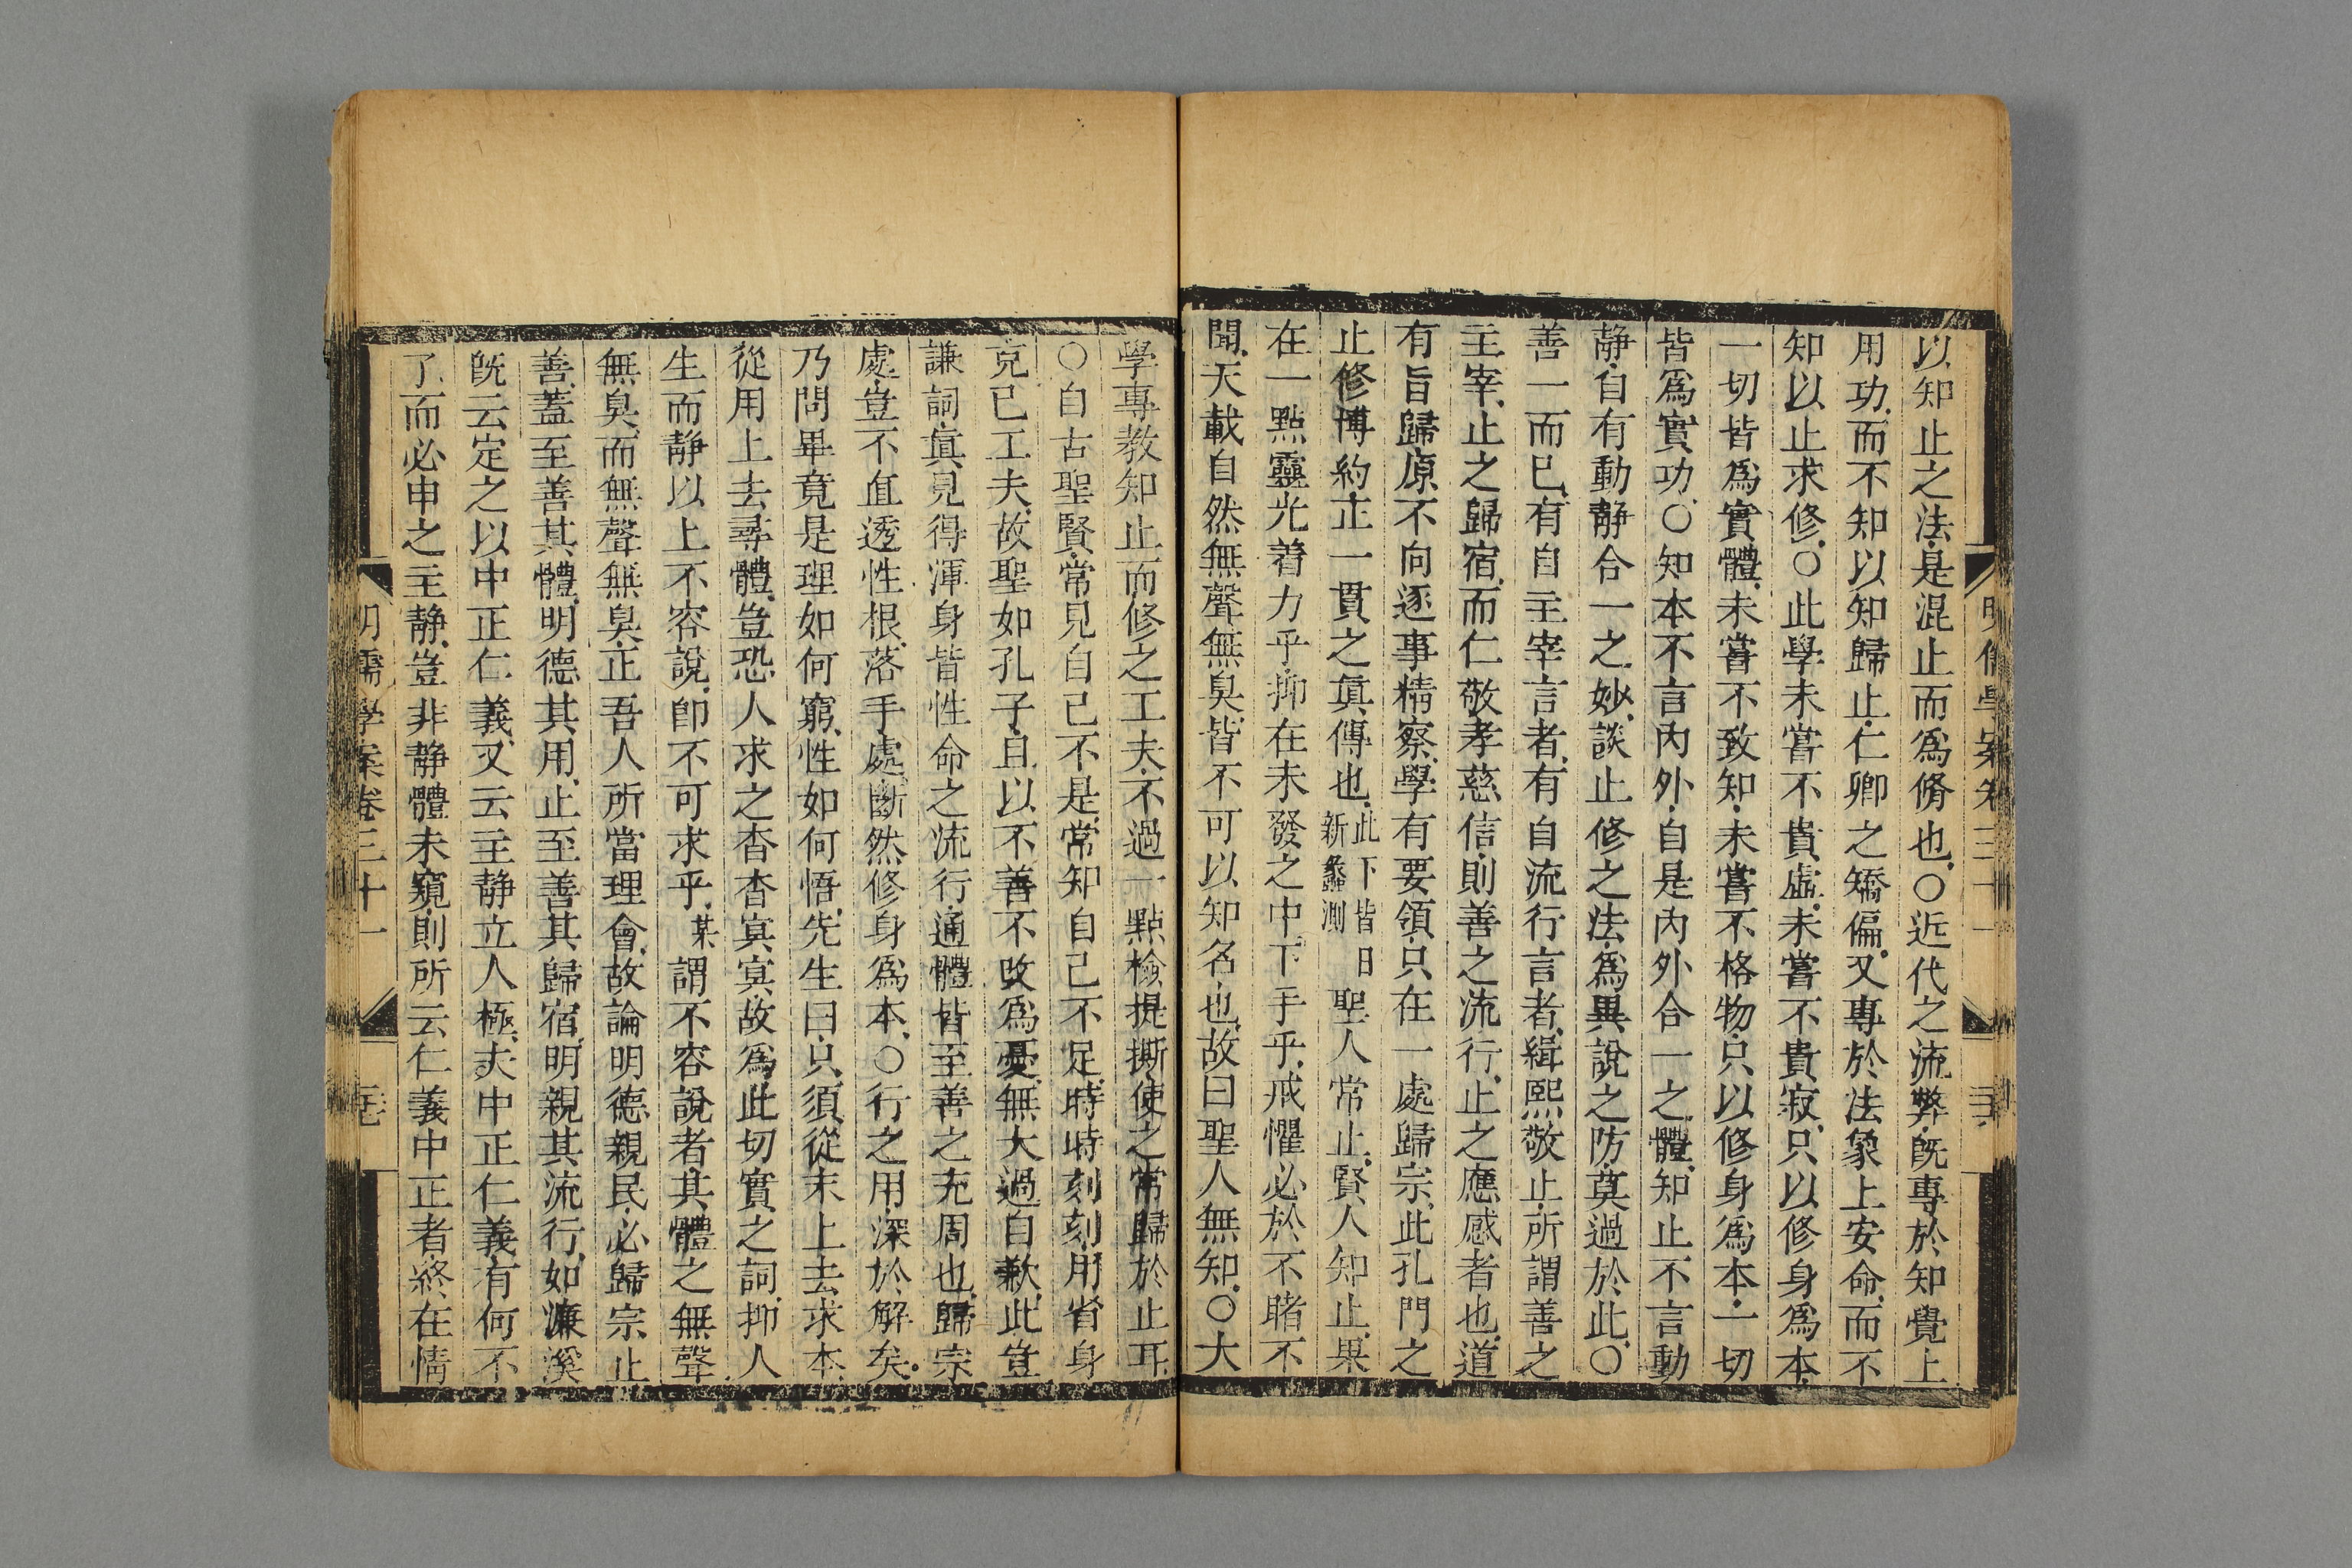 以知止之法是混止而爲脩也○近代之流弊旣專於知覺上
用功而不知以知歸止仁卿之矯偏又專於法象上安命而不
知以止求修○此學未嘗不貴虛未嘗不貴寂只以修身爲本
一切皆爲實體未嘗不致知未嘗不格物只以修身爲本一切
皆爲實功○知本不言內外自是內外合一之體知止不言動
静自有動静合一之妙談止修之法爲異說之防莫過於此○
善一而已有自主宰言者有自流行言者緝熙敬止所謂善之
主宰止之歸宿而仁敬孝慈信則善之流行止之應感者也道
有旨歸原不向逐事精察學有要領只在一處歸宗此孔門之
止修博約正一貫之眞傳也此下皆日新蠡測聖人常止賢人知止果
在一點靈光着力乎抑在未發之中下手乎戒懼必於不睹不
聞天載自然無聲無臭皆不可以知名也故曰聖人無知○大
學專教知止而修之工夫不過一點檢提撕使之常歸於止耳
○自古聖賢常見自己不是常知自己不足時時刻刻用省身
克己工夫故聖如孔子且以不善不改爲憂無大過自歉此豈
謙詞眞見得渾身皆性命之流行通體皆至善之充周也歸宗
處豈不直透性根落手處斷然修身爲本○行之用深於解矣
乃問畢竟是理如何窮性如何悟先生曰只須從末上去求本
從用上去尋體豈恐人求之杳杳冥冥故爲此切實之詞抑人
生而静以上不容說卽不可求乎某謂不容說者其體之無聲
無臭而無聲無臭正吾人所當理會故論明德親民必歸宗止
善蓋至善其體明德其用止至善其歸宿明親其流行如濂溪
旣云定之以中正仁義又云主静立人極夫中正仁義有何不
了而必申之主静豈非静體未窺則所云仁義中正者終在情
明儒學案卷三十一